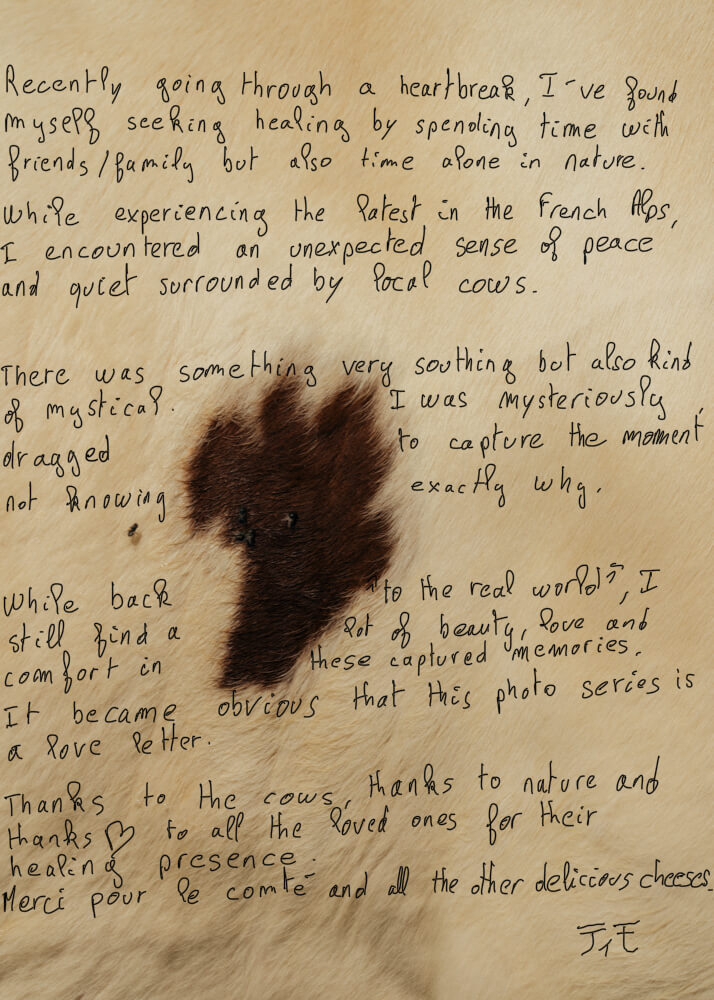 Recently going through a heartbreak, I've found
myself seeking healing by spending time with
friends/family but also time alone in nature.
While experiencing the latest in the French Alps,
I encountered an unexpected sense of peace
and quiet surrounded by local cows.
There was something very soothing but also kind
of mystical. I was mysteriously
dragged to capture the moment,
not knowing exactly why.
While back "to the real world", I
still find a lot of beauty, love and
comfort in these captured memories.
It became obvious that this photo series is
a love letter.
Thanks to the cows, thanks to nature and
thanks ♡ to all the loved ones for their
healing presence.
Merci pour le comté and all the other delicious cheeses.
ティモ